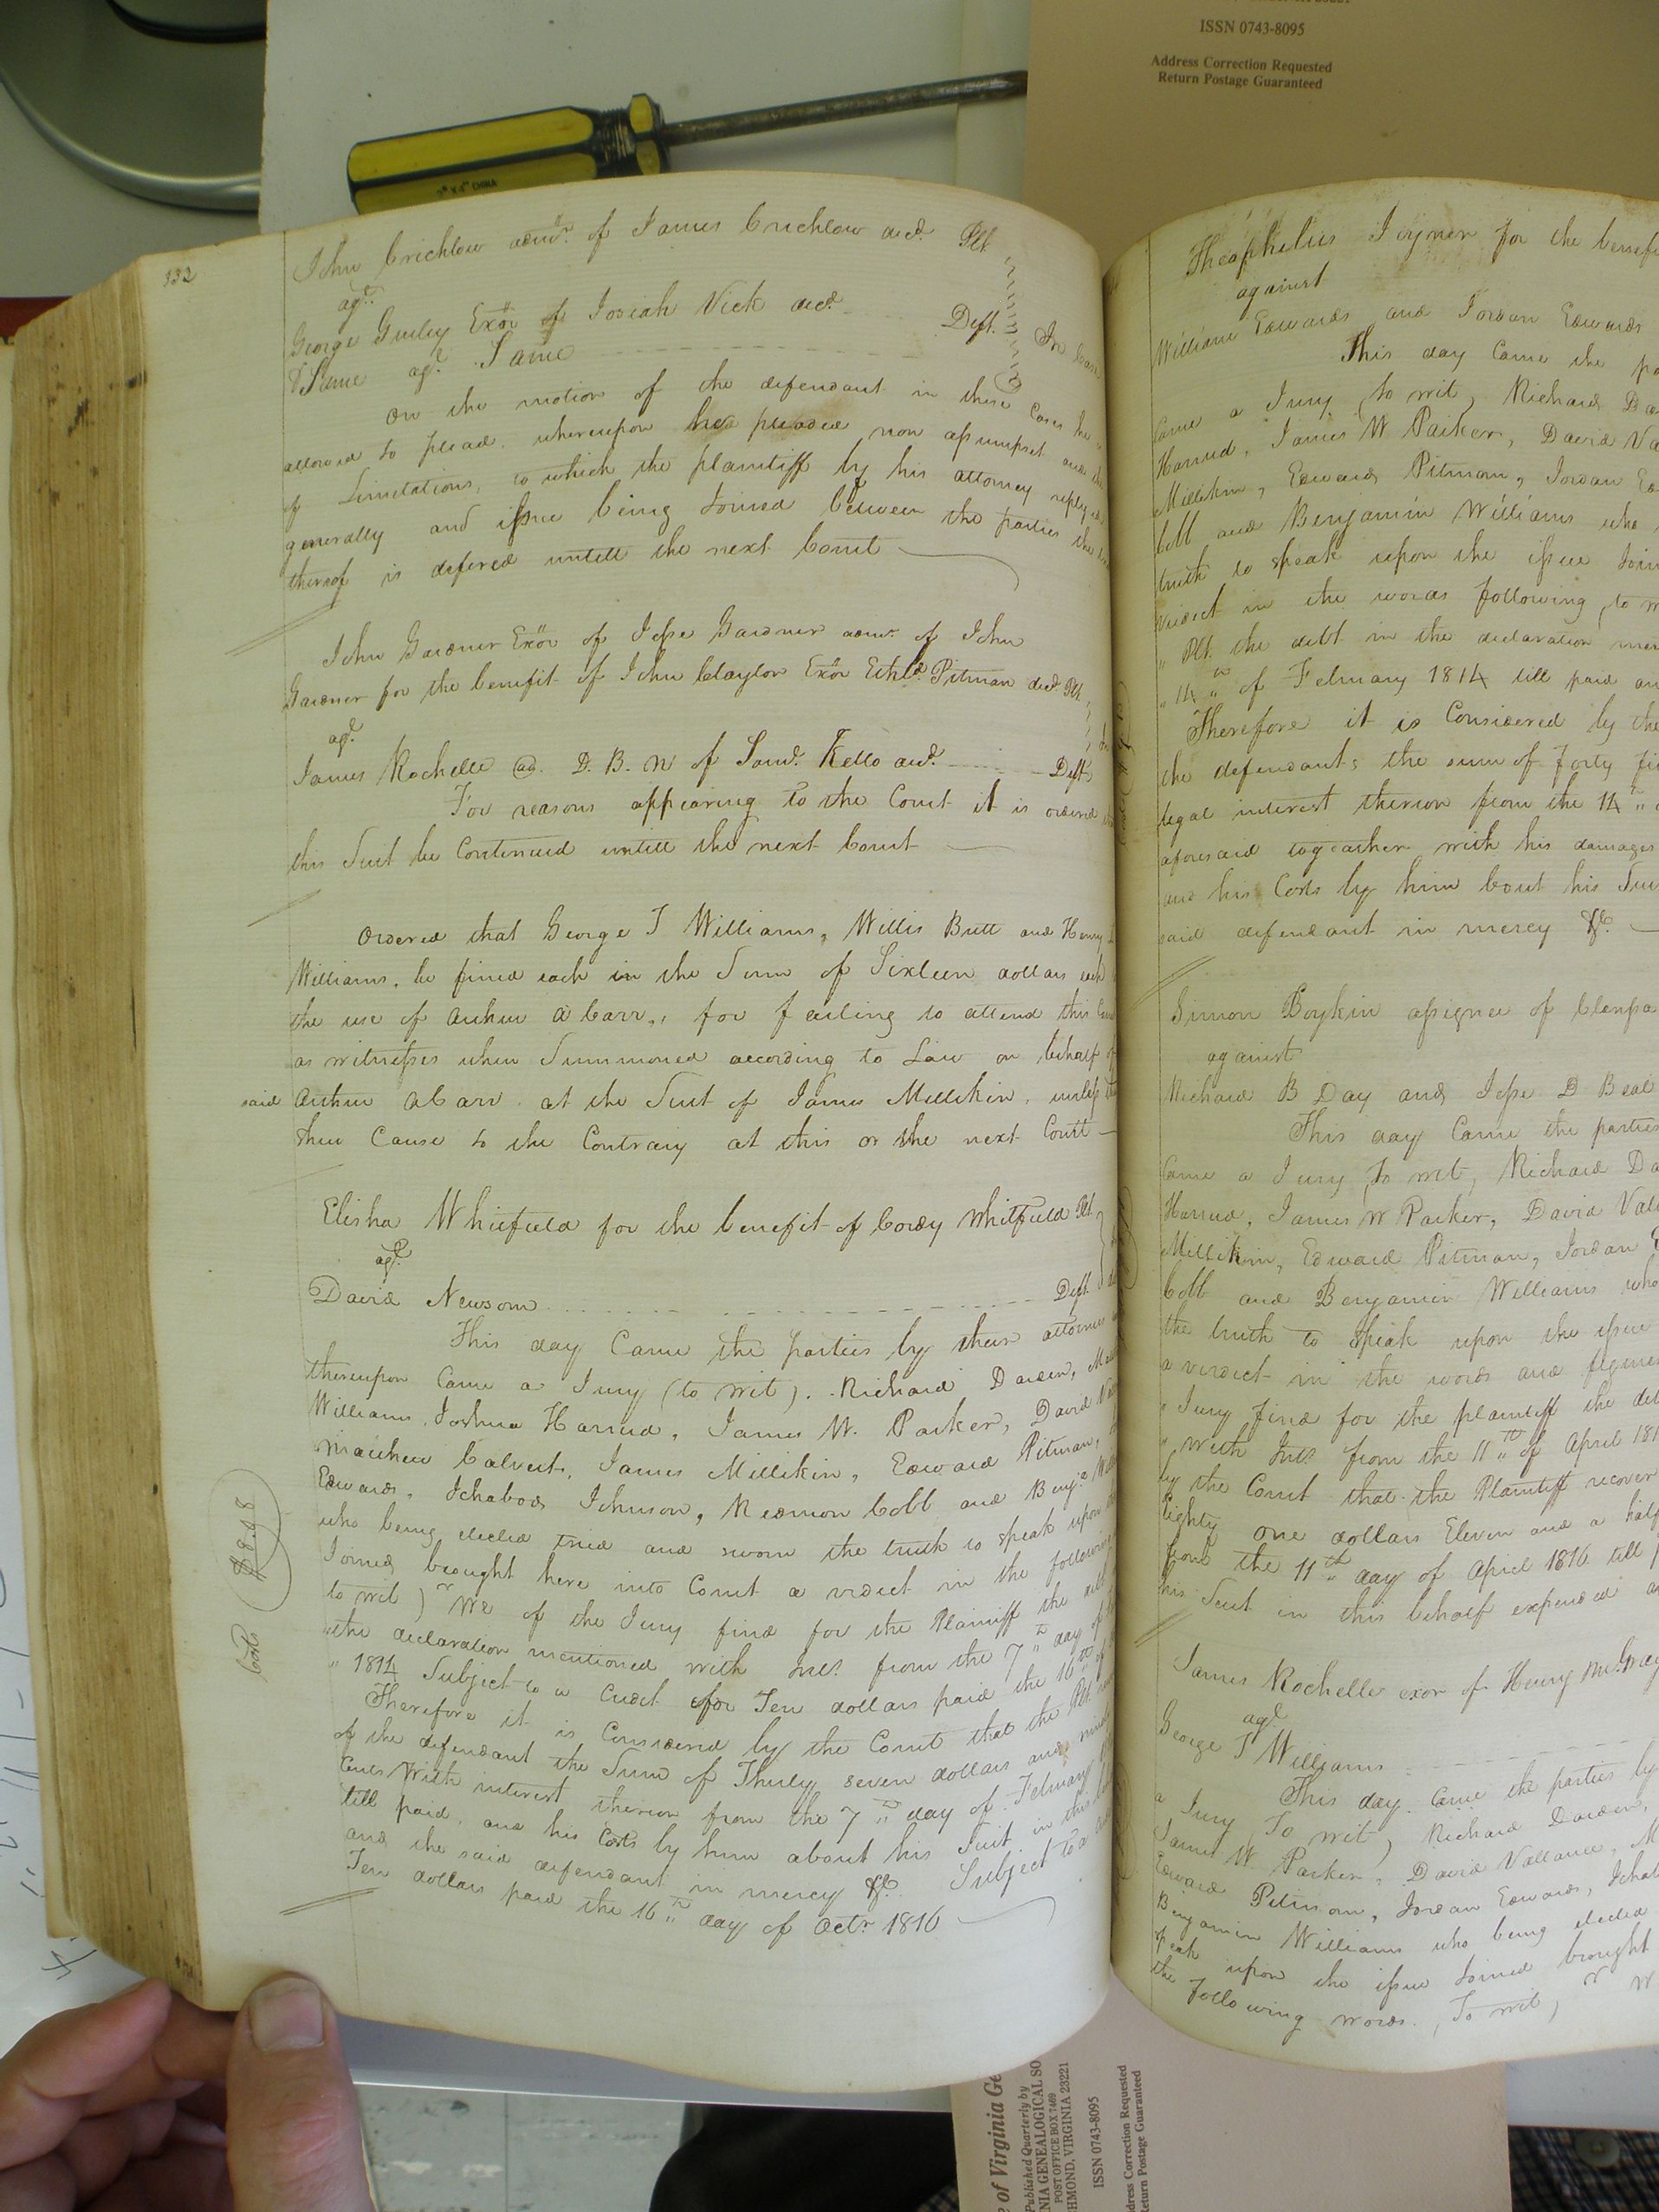 ISSN 0743-8095
Address Correction Requested
Return Postage Guaranteed
CHINA
332
John Crichlow admr. of James Crichlow decd. Plt
agt.
George Gurley Exor of Josiah Vick decd. Deft.
Same agt. Same
On the motion of the defendant in these Cases he
allowed to plead. whereupon he pleaded non assumpset and the
of Limitations, to which the plaintiff by his attorney reply
generally and issue being Joined between the parties the
thereof is defered untill the next Court
John Gardner Exor of Jesse Gardner admr. of John
Gardner for the benefit of John Clayton Exor Ethld. Pitman decd. Plt
agt.
James Rochelle ad. D. B. N of Saml. Kello decd. Deft
For reasons appearing to the Court it is ordered
this Suit be Continued untill the next Court
Ordered that George T Williams, Willis Britt and Henry
Williams, be fined each in the Sum of Sixteen dollars each
the use of Arthur A Carr, for failing to attend this
as witnesses when Summoned according to Law on behalf of
said Arthur A Carr at the Suit of James Millikin, unless
shew Cause to the Contrary at this or the next Court
Elisha Whitfield for the benefit of Cordy Whitfield Plt
agt.
David Newsom Deft.
This day Came the parties by their attornies
thereupon Came a Jury (to wit). Richard Darden,
Williams, Joshua Harrud, James W. Parker, David
Matthew Calvert, James Millikin, Edward Pitman,
Edwards, Ichabod Johnson, Redmon Cobb and Benja.
who being elected tried and sworn the truth to speak upon
Joined brought here into Court a virdict in the following
to wit) "We of the Jury find for the Plaintiff the debt
"the declaration mentioned with Intt. from the 7th day of
" 1814 Subject to a Credit for Ten dollars paid the 16th of
Therefore it is Considered by the Court that the Plt.
of the defendant the Sum of Thirty seven dollars and
Cents With interest thereon from the 7th day of February
till paid, and his Costs by him about his Suit in this
and the said defendant in mercy &c. Subject to a
Ten dollars paid the 16th day of Octr. 1816
Costs $8.88
Theophelius Joyner for the benefi
against
William Edwards and Jordan Edwards
This day Came the pa
Came a Jury (to wit, Richard Da
Harrud, James W Parker, David Va
Millikin, Edward Pitman, Jordan Ed
Cobb and Benjamin Williams who
truth to speak upon the issue Join
virdict in the words following, to w
" Plt. the debt in the declaration men
" 14th of February 1814 till paid an
Therefore it is Considered by the
the defendants the sum of forty fi
legal interest thereon from the 14th
aforesaid togeather with his damages
and his Costs by him bout his Sui
said defendant in mercy &c.
Simon Boykin assignee of
against
Richard B Day and Jesse D Beal
This day Came the parties
Came a Jury, to wit, Richard Da
Harrud, James W Parker, David Val
Millikin, Edward Pitman, Jordan E
Cobb and Benjamin Williams who
the truth to speak upon the issue
a verdict in the words and figures
" Jury find for the plaintiff the de
" with Intt. from the 11th of April 181
by the Court that the Plaintiff recover
Eighty one dollars Eleven and a half
from the 11th day of April 1816 till p
his Suit in this behalf expended a
James Rochelle exor of Henry
agt.
George T Williams
This day Came the parties by
a Jury To wit, Richard Darden,
James W. Parker, David Vallance, M
Edward Pitman, Jordan Edwards, Ichab
Benjamin Williams who being elected
speak upon the issue Joined brought
the following words, To wit, " W
of Virginia Ge
Published Quarterly by
NIA GENEALOGICAL SO
POST OFFICE BOX 7469
HMOND, VIRGINIA 23221
ISSN 0743-8095
dress Correction Requested
eturn Postage Guaranteed